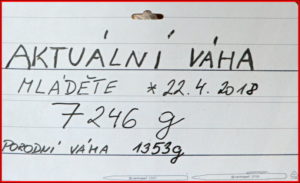 AKTUÁLNÍ VÁHA
MLÁDĚTE * 22.4.2018
7246 g
PORODNÍ VÁHA 1353g